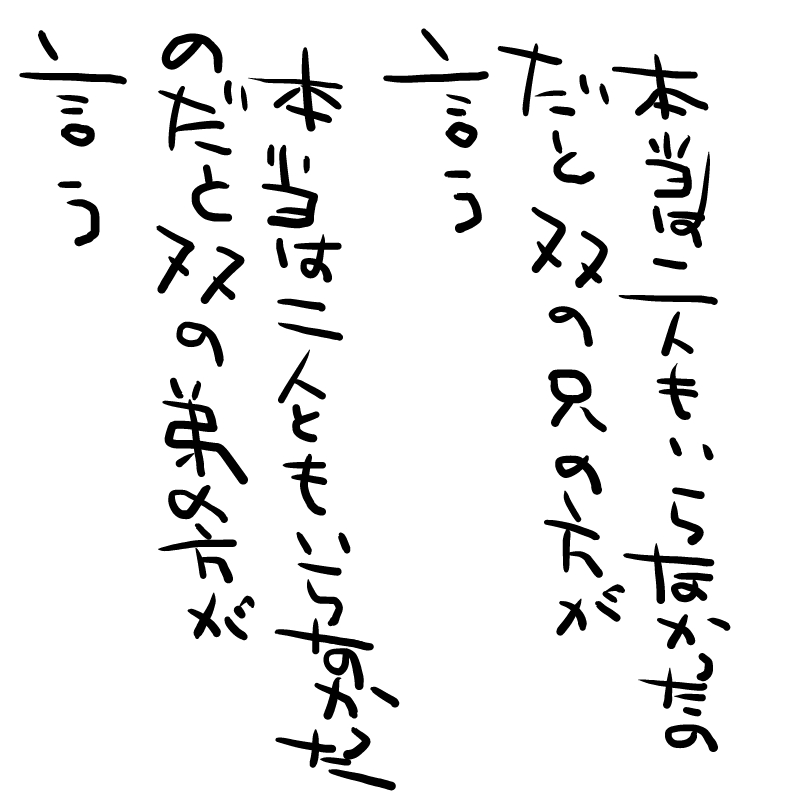 本当は二人もいらなかったの
だと双の兄の方が
言う
本当は二人ともいらなかった
のだと双の弟の方が
言う